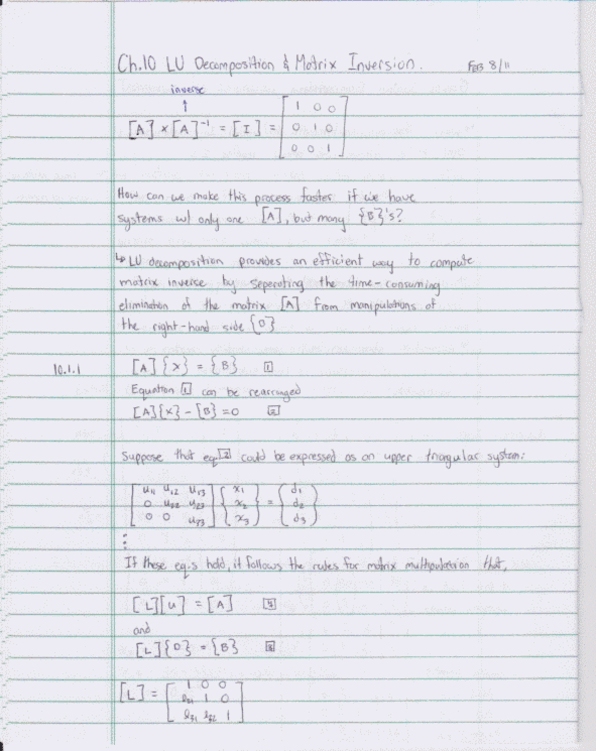 Ch.10 LU Decomposition & Matrix Inversion. Feb 8/11
inverse
↑
[A] × [A]⁻¹ = [I] = [1 0 0
0 1 0
0 0 1]
How can we make this process faster if we have
systems w/ only one [A], but many {B}'s?
↳ LU decomposition provides an efficient way to compute
matrix inverse by seperating the time-consuming
elimination of the matrix [A] from manipulations of
the right-hand side {B}
10.1.1 [A]{X} = {B} [1]
Equation [1] can be rearranged
[A]{X} - {B} = 0 [2]
Suppose that eq [2] could be expressed as an upper triangular system:
[u₁₁ u₁₂ u₁₃] {x₁} = {d₁}
[0 u₂₂ u₂₃] {x₂} {d₂}
[0 0 u₃₃] {x₃} {d₃}
⋮
If these eq.s hold, it follows the rules for matrix multipulation that,
[L][U] = [A]
and
[L]{D} = {B}
[L] = [1 0 0
l₂₁ 1 0
l₃₁ l₃₂ 1]